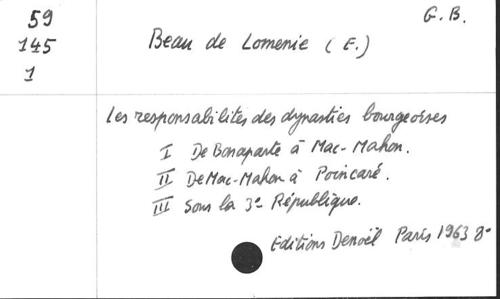 59
145
1
G. B.
Beau de Lomenie (E.)
Les responsabilités des dynasties bourgeoises
I De Bonaparte à Mac-Mahon.
II De Mac-Mahon à Poincaré.
III Sous la 3e République.
Editions Denoël Paris 1963 8°